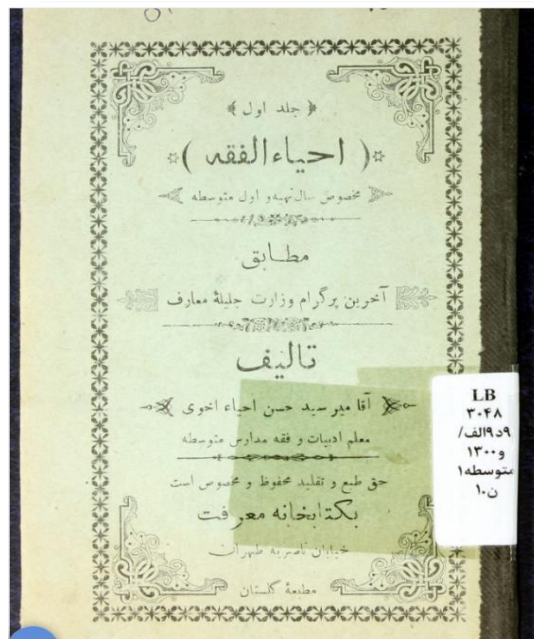 ﴿ جلد اول ﴾
( احیاء الفقه )
مخصوص سال تهیه و اول متوسطه
مطابق
آخرین پرگرام وزارت جلیلهٔ معارف
تالیف
آقا میر سید حسن احیاء اخوی
معلم ادبیات و فقه مدارس متوسطه
حق طبع و تقلید محفوظ و مخصوص است
بکتابخانه معرفت
خیابان ناصریه طهران
مطبعهٔ گلستان
LB
۳۰۴۸
۹د۹الف/
و۱۳۰۰
متوسطه۱
ن۱۰